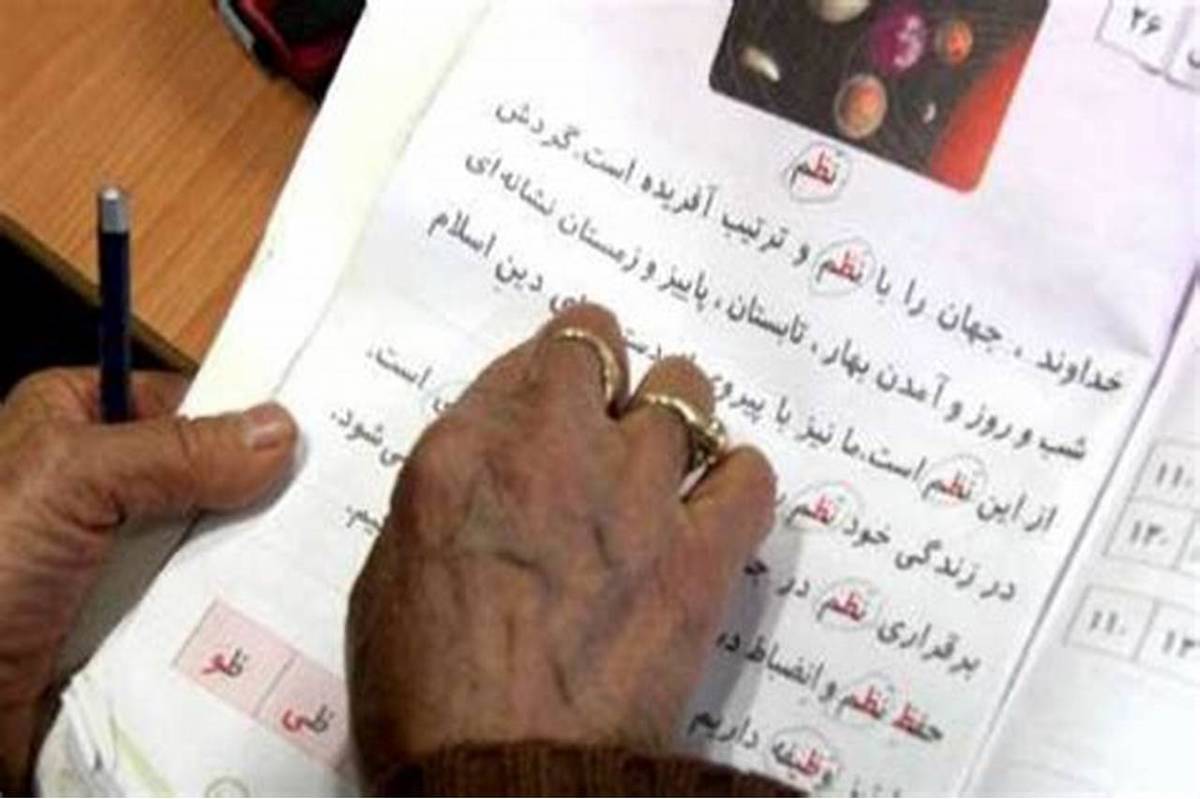 ۲۶
نظم
خداوند ، جهان را با نظم و ترتیب آفریده است. گردش
شب و روز و آمدن بهار ، تابستان ، پاییز و زمستان نشانه ای
از این نظم است. ما نیز با پیروی دین اسلام
در زندگی خود نظم است.
برقراری نظم در می شود.
حفظ نظم و انضباط در
وظیفه داریم
ظی ظو
۱۱۰
۱۳۰
۱۱۰